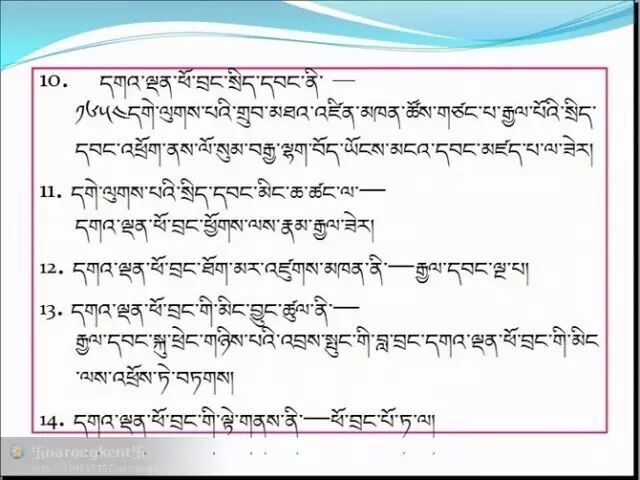 10. དགའ་ལྡན་ཕོ་བྲང་སྲིད་དབང་ནི་ —
༡༦༥༤དགེ་ལུགས་པའི་གྲུབ་མཐའ་འཛིན་མཁན་ཚོས་གཙང་པ་རྒྱལ་པོའི་སྲིད་
དབང་འཕྲོག་ནས་ལོ་སུམ་བརྒྱ་ལྷག་བོད་ཡོངས་མངའ་དབང་མཛད་པ་ལ་ཟེར།
11. དགེ་ལུགས་པའི་སྲིད་དབང་མིང་ཆ་ཚང་ལ་—
དགའ་ལྡན་ཕོ་བྲང་ཕྱོགས་ལས་རྣམ་རྒྱལ་ཟེར།
12. དགའ་ལྡན་ཕོ་བྲང་ཐོག་མར་འཛུགས་མཁན་ནི་—རྒྱལ་དབང་ལྔ་པ།
13. དགའ་ལྡན་ཕོ་བྲང་གི་མིང་བྱུང་ཚུལ་ནི་—
རྒྱལ་དབང་སྐུ་ཕྲེང་གཉིས་པའི་འབྲས་སྤུང་གི་བླ་བྲང་དགའ་ལྡན་ཕོ་བྲང་གི་མིང
ལས་འཕྲོས་ཏེ་བཏགས།
14. དགའ་ལྡན་ཕོ་བྲང་གི་ལྟེ་གནས་ནི་—ཕོ་བྲང་པོ་ཏ་ལ།
narongkent